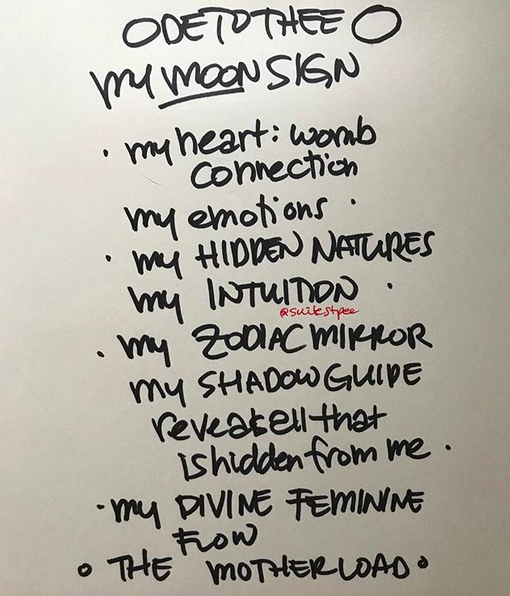 ODE TO THEE O
my MOON SIGN
• my heart: womb
connection
my emotions •
• my HIDDEN NATURES
my INTUITION •
@suikstpee
• my ZODIAC MIRROR
my SHADOW GUIDE
reveals all that
is hidden from me •
• my DIVINE FEMININE
FLOW
• THE MOTHERLOAD •